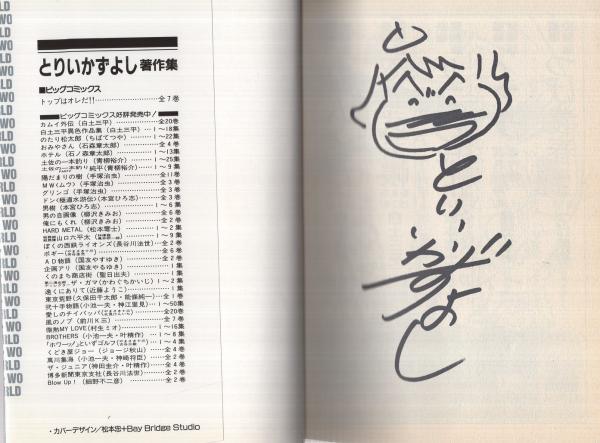 とりいかずよし 著作集
■ビッグコミックス
トップはオレだ!!……全7巻
ビッグコミックス好評発売中!
カムイ外伝(白土三平)……全20巻
白土三平異色作品集(白土三平)…1〜18集
のたり松太郎(ちばてつや)…1〜22集
おみやさん(石森章太郎)……全4巻
ホテル(石ノ森章太郎)…1〜13集
土佐の一本釣り(青柳裕介)…1〜25集
土佐の一本釣り純平(青柳裕介)…1〜9集
陽だまりの樹(手塚治虫)……全11巻
MW<ムウ>(手塚治虫)……全3巻
グリンゴ(手塚治虫)……全3巻
ドン<極道水滸伝>(本宮ひろ志)……全3巻
男樹(本宮ひろ志)…1〜6集
男の自画像(柳沢きみお)……全6巻
俺にもくれ(柳沢きみお)……全2巻
HARD METAL(松本零士)…1〜2集
山口六平太…1〜9集
ぼくの西鉄ライオンズ(長谷川法世)…全2巻
ボギー……全6巻
AD物語(国友やすゆき)……全2巻
企画アリ(国友やるゆき)……1集
くのまち商店街(聖日出夫)……1集
ザ・ガマ(かわぐちかいじ)…1〜2集
遠くにありて(近藤ようこ)……1集
東京荒野(久保田千太郎・能條純一)…全1巻
弐十手物語(小池一夫・神江里見)…1〜50集
愛しのチィパッパ……全20巻
風のノブ(前川K三)……全7巻
微熱MY LOVE(村生ミオ)…1〜16集
BROTHERS(小池一夫・叶精作)…1〜8集
といずゴルフ…1〜4集
くどき屋ジョー(ジョージ秋山)……全4巻
萬川集海(小池一夫・神崎将臣)……全2巻
ザ・ジュニア(神田圭介・叶精作)……全4巻
博多新聞東京支社(長谷川法世)……全2巻
Blow Up!(細野不二彦)……全2巻
・カバーデザイン/松本忠+Bay Bridge Studio
とりいかずよし